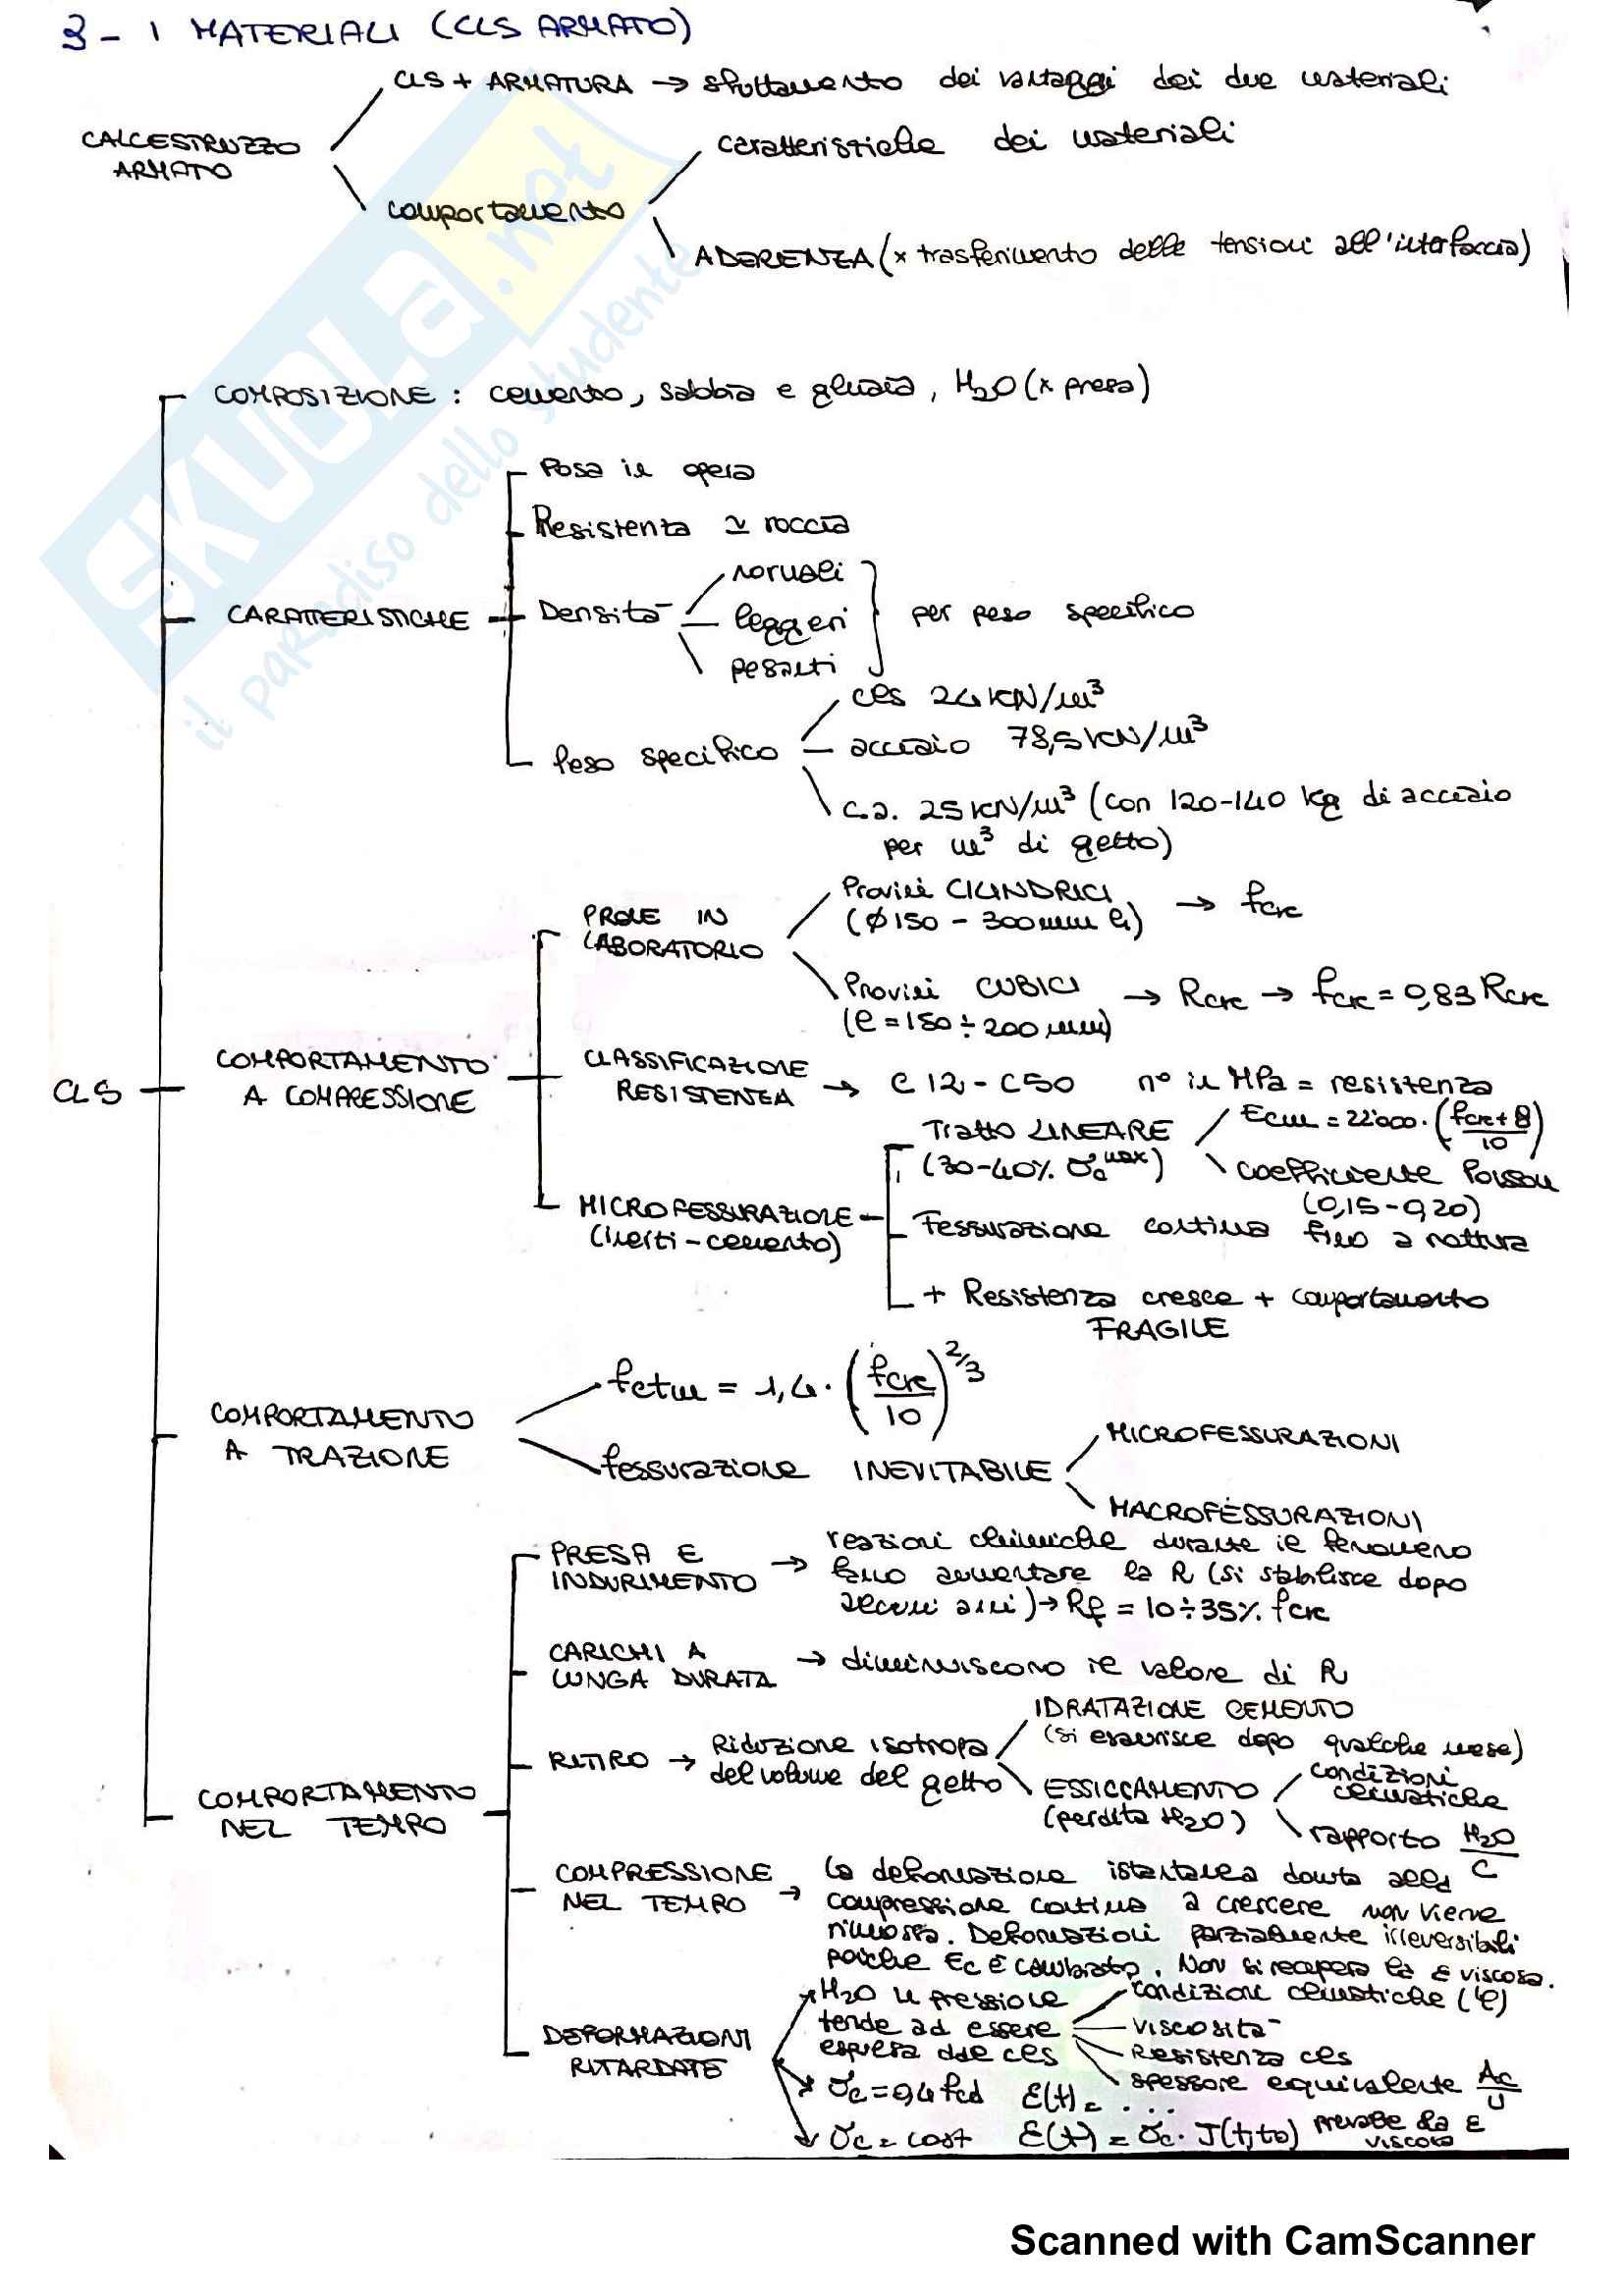 3 - 1 MATERIALI (CLS ARMATO)
CLS + ARMATURA → sfruttamento dei vantaggi dei due materiali
CALCESTRUZZO
ARMATO
caratteristiche dei materiali
comportamento
ADERENZA (x trasferimento delle tensioni all'interfaccia)
SKUOLA.net
il paradiso dello studente
COMPOSIZIONE : cemento, sabbia e ghiaia, H2O (x presa)
Posa in opera
Resistenza ≃ roccia
CARATTERISTICHE
Densità
normali
leggeri
pesanti
per peso specifico
Peso specifico
cls 24 KN/m³
acciaio 78,5 KN/m³
c.a. 25 KN/m³ (con 120-140 kg di acciaio
per m³ di getto)
CLS
COMPORTAMENTO
A COMPRESSIONE
PROVE IN
LABORATORIO
Provini CILINDRICI → fck
(Ø150 - 300 mm h)
Provini CUBICI → Rck → fck = 0,83 Rck
(l = 150 ÷ 200 mm)
CLASSIFICAZIONE
RESISTENZA → C12 - C50 n° in MPa = resistenza
MICROFESSURAZIONE
(inerti - cemento)
Tratto LINEARE
(30-40% σc max)
Ecm = 22'000 · (fck + 8 / 10)
coefficiente Poisson
(0,15 - 0,20)
Fessurazione continua fino a rottura
+ Resistenza cresce + comportamento
FRAGILE
COMPORTAMENTO
A TRAZIONE
fctm = 1,4 · (fck / 10)^2/3
fessurazione INEVITABILE
MICROFESSURAZIONI
MACROFESSURAZIONI
COMPORTAMENTO
NEL TEMPO
PRESA E
INDURIMENTO →
reazioni chimiche durante il fenomeno
fanno aumentare la R (si stabilisce dopo
alcuni anni) → Rf = 10÷35% fck
CARICHI A
LUNGA DURATA → diminuiscono il valore di R
RITIRO → Riduzione isotropa
del volume del getto
IDRATAZIONE CEMENTO
(si esaurisce dopo qualche mese)
ESSICCAMENTO
(perdita H2O)
condizioni
climatiche
rapporto H2O / C
COMPRESSIONE
NEL TEMPO →
la deformazione istantanea dovuta alla
compressione continua a crescere non viene
rimossa. Deformazioni parzialmente irreversibili
poiché Ec è cambiato. Non si recupera la ε viscosa.
DEFORMAZIONI
RITARDATE
H2O in pressione
tende ad essere
espulsa dal cls
condizioni climatiche
viscosità
Resistenza cls
spessore equivalente Ac / U
σc = 0,4 fcd ε(t) = ...
σc = cost ε(t) = σc · J(t,t0) prevale la ε
viscosa
Scanned with CamScanner